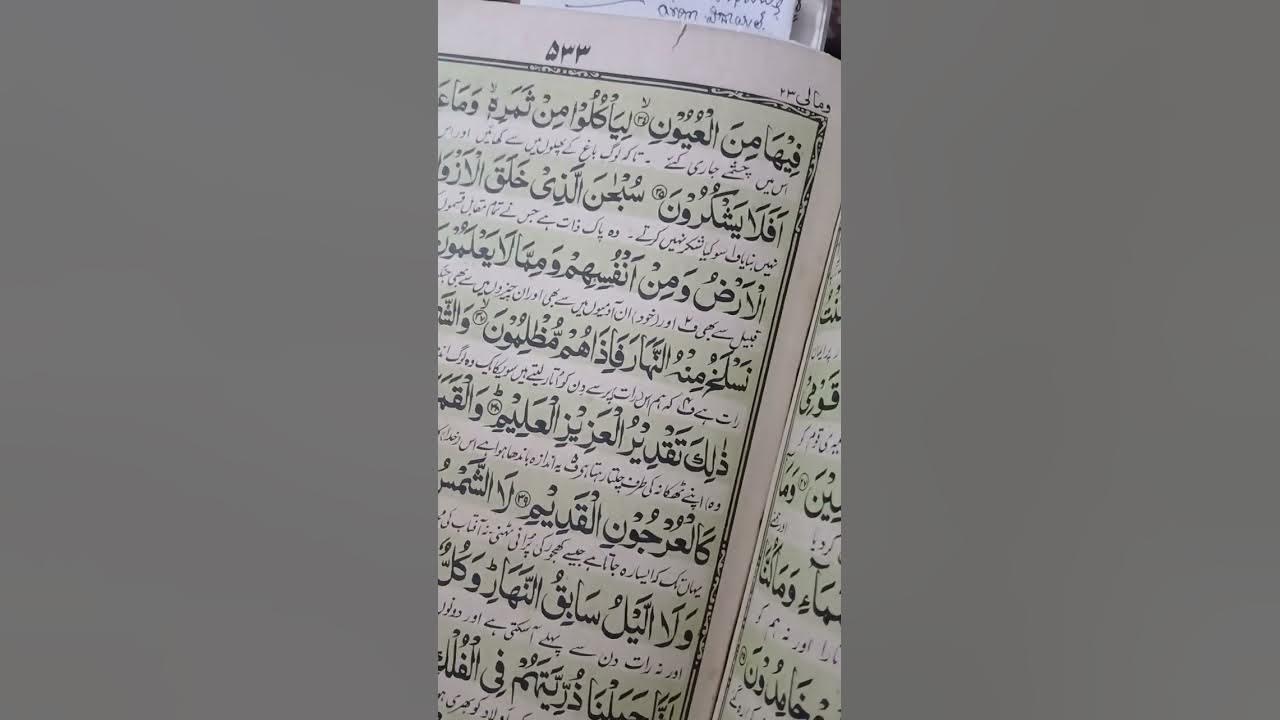 ۵۳۳
ومالی ۲۳
فِيْهَا مِنَ الْعُيُوْنِ ۙ۳۴ لِيَاْكُلُوْا مِنْ ثَمَرِهٖ ۙ وَمَا عَ
اس میں چشمے جاری کئے ۔ تاکہ لوگ باغ کے پھلوں میں سے کھائیں اور اس
اَفَلَا يَشْكُرُوْنَ ۳۵ سُبْحٰنَ الَّذِىْ خَلَقَ الْاَزْوَا
نہیں بنایا ف سو کیا شکر نہیں کرتے ۔ وہ پاک ذات ہے جس نے تمام مقابل قسموں
الْاَرْضُ وَمِنْ اَنْفُسِهِمْ وَمِمَّا لَا يَعْلَمُوْنَ
قبیل سے بھی ف۲ اور (خود) ان آدمیوں میں سے بھی اور ان چیزوں میں سے بھی
نَسْلَخُ مِنْهُ النَّهَارَ فَاِذَا هُمْ مُّظْلِمُوْنَ ۙ۳۷ وَالشَّمْ
رات ہے ف۴ کہ ہم اس رات پر سے دن کو اتار لیتے ہیں سو یکایک وہ لوگ
ذٰلِكَ تَقْدِيْرُ الْعَزِيْزِ الْعَلِيْمِ ۳۸ وَالْقَمَرَ
وہ اپنے ٹھکانہ کی طرف چلتا رہتا ہے ف۵ یہ اندازہ باندھا ہوا ہے اس
كَالْعُرْجُوْنِ الْقَدِيْمِ ۳۹ لَا الشَّمْسُ
یہاں تک کہ ایسا رہ جاتا ہے جیسے کھجور کی پرانی ٹہنی نہ آفتاب کی
وَلَا الَّيْلُ سَابِقُ النَّهَارِ ۭ وَكُلٌّ
اور نہ رات دن سے پہلے آ سکتی ہے اور دونوں
اَنَّا حَمَلْنَا ذُرِّيَّتَهُمْ فِى الْفُلْكِ
اولاد کو بھری
قَوْمِىْ
میری قوم کو
وَمَآ
کر دیا
وَمَا كُنَّا
اور نہ ہم کو
خَامِدُوْنَ